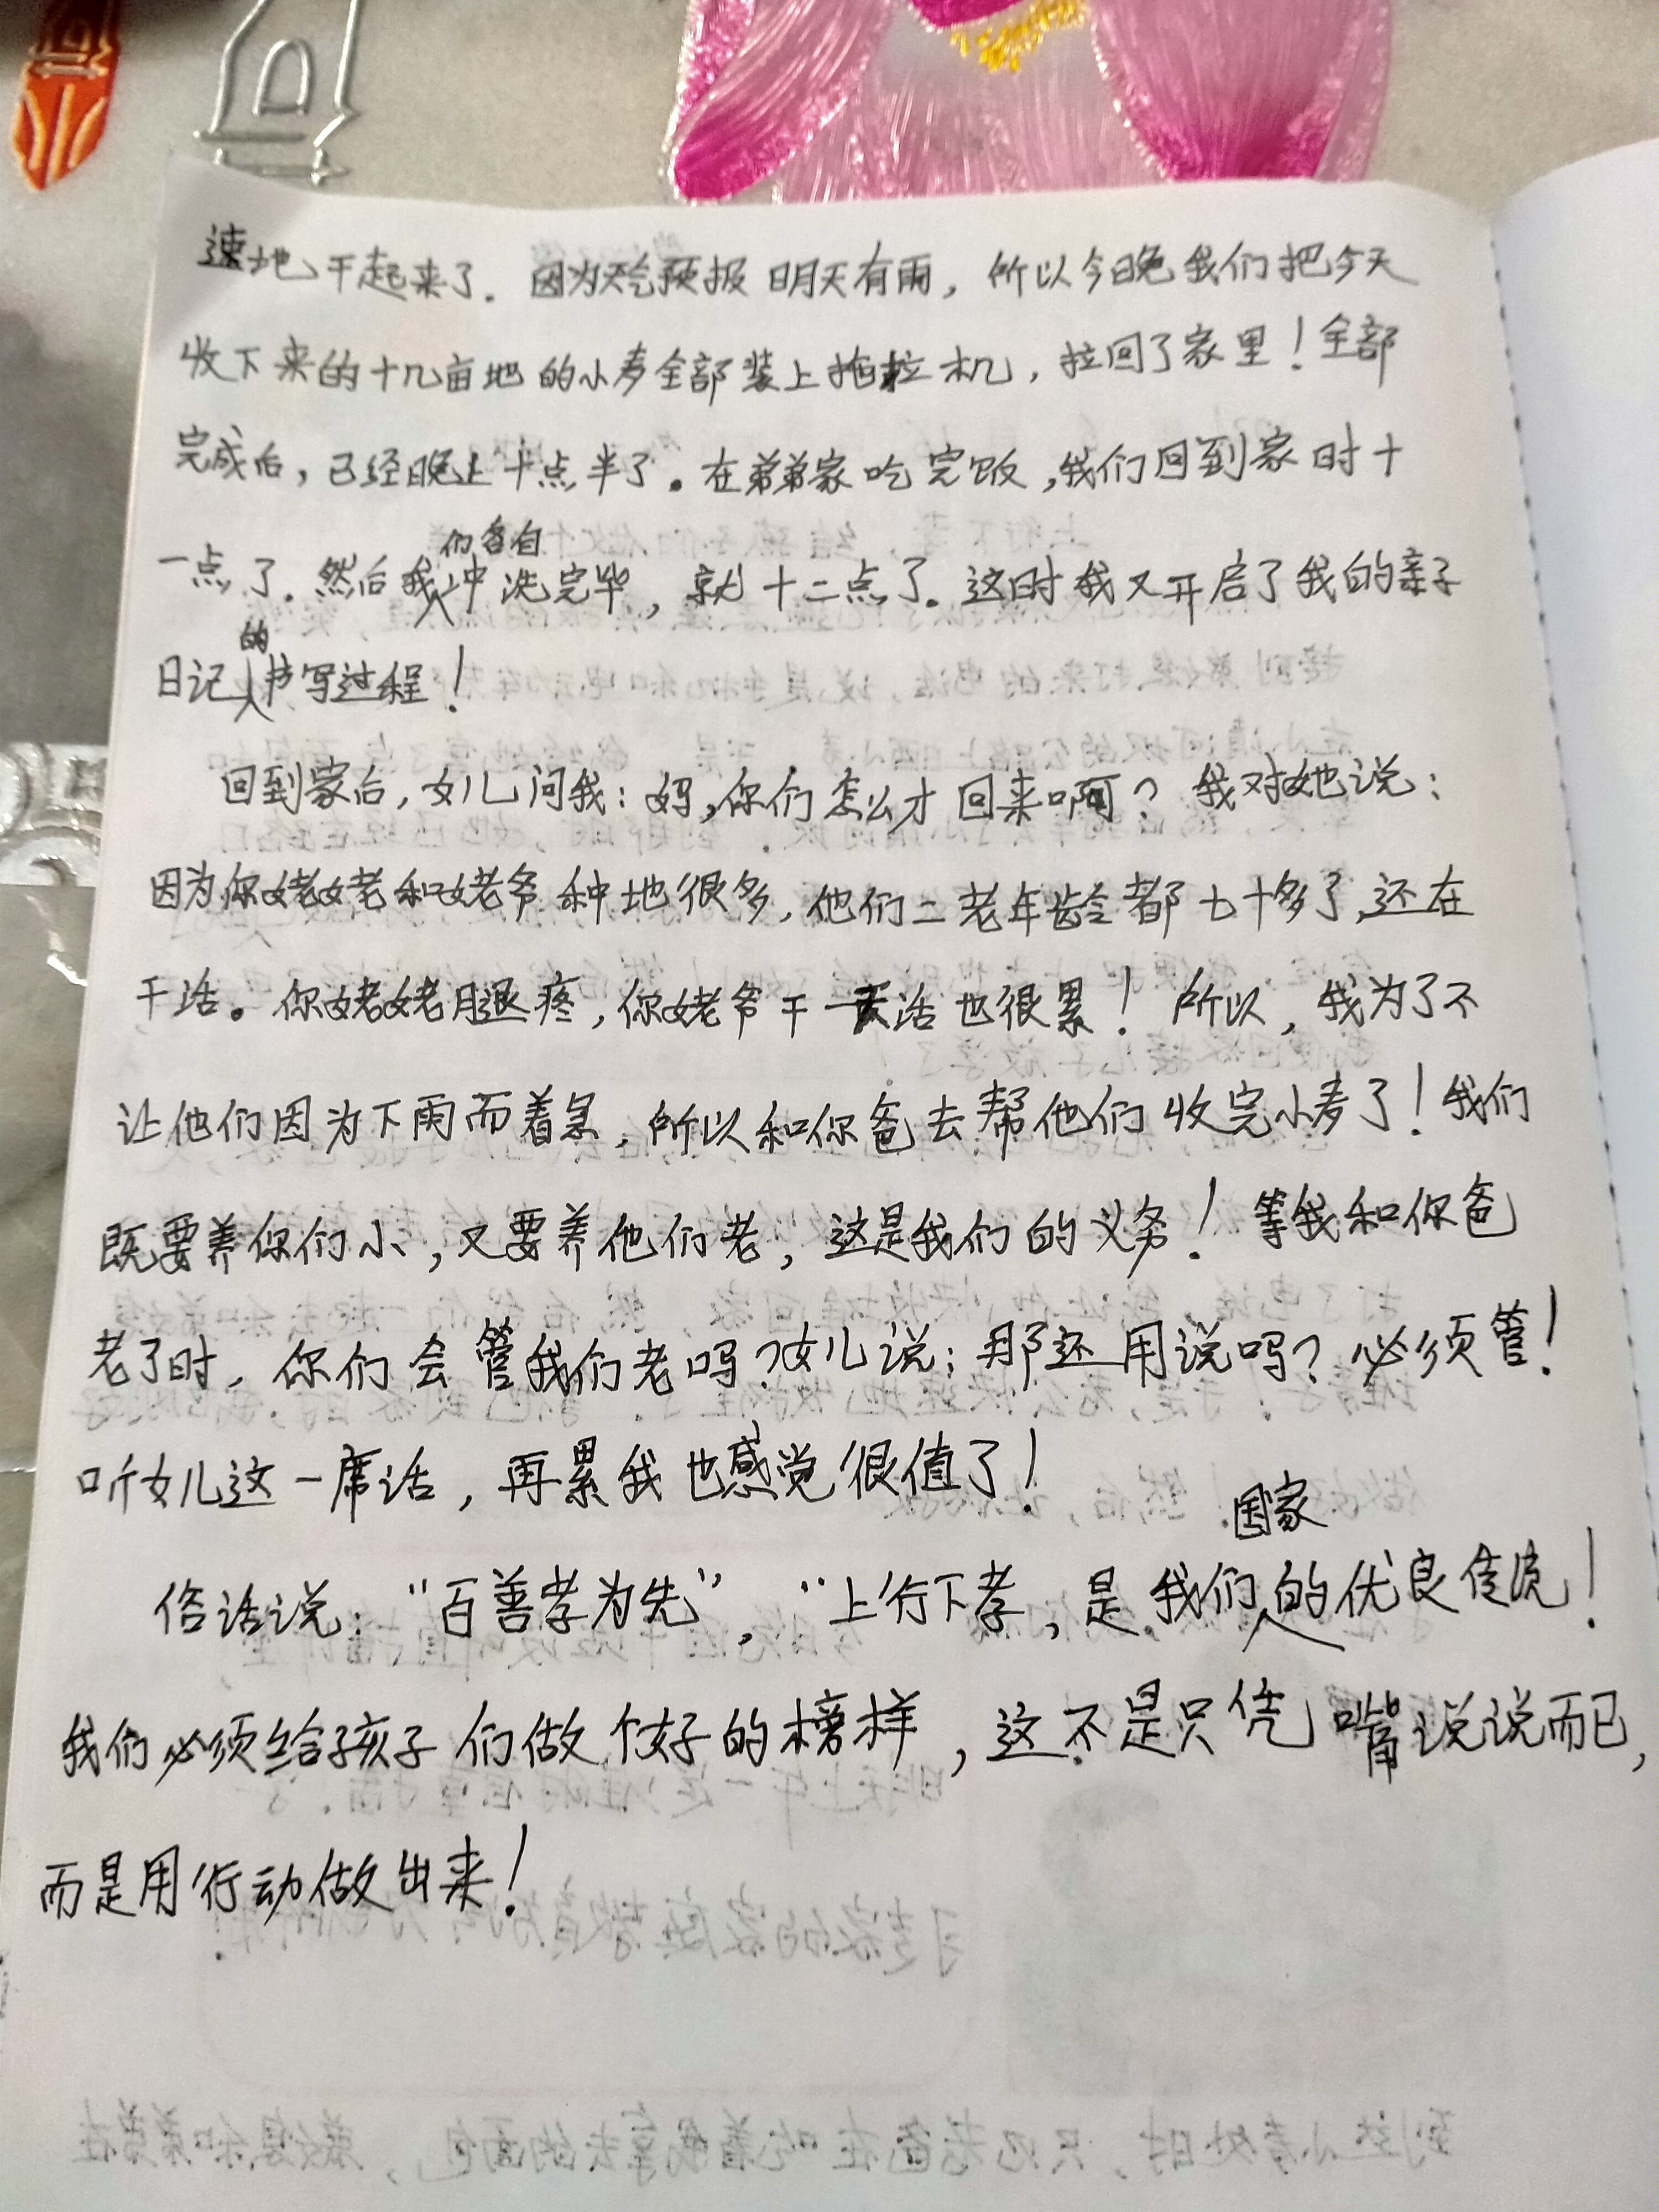 速地干起来了. 因为天气预报明天有雨，所以今晚我们把今天
收下来的十几亩地的小麦全部装上拖拉机，拉回了家里！全部
完成后，已经晚上十点半了。在弟弟家吃完饭，我们回到家时十
一点了. 然后我们各自冲洗完毕，就十二点了. 这时我又开启了我的亲子
日记的书写过程！
回到家后，女儿问我：妈，你们怎么才回来啊？我对她说：
因为你姥姥和姥爷种地很多，他们二老年龄都七十多了，还在
干活。你姥姥腿疼，你姥爷干一天活也很累！所以，我为了不
让他们因为下雨而着急，所以和你爸去帮他们收完小麦了！我们
既要养你们小，又要养他们老，这是我们的义务！等我和你爸
老了时，你们会管我们老吗？女儿说：那还用说吗？必须管！
听女儿这一席话，再累我也感觉很值了！
俗话说：“百善孝为先”，“上行下孝，是我们国家的优良传统！
我们必须给孩子们做个好的榜样，这不是只凭嘴说说而已，
而是用行动做出来！